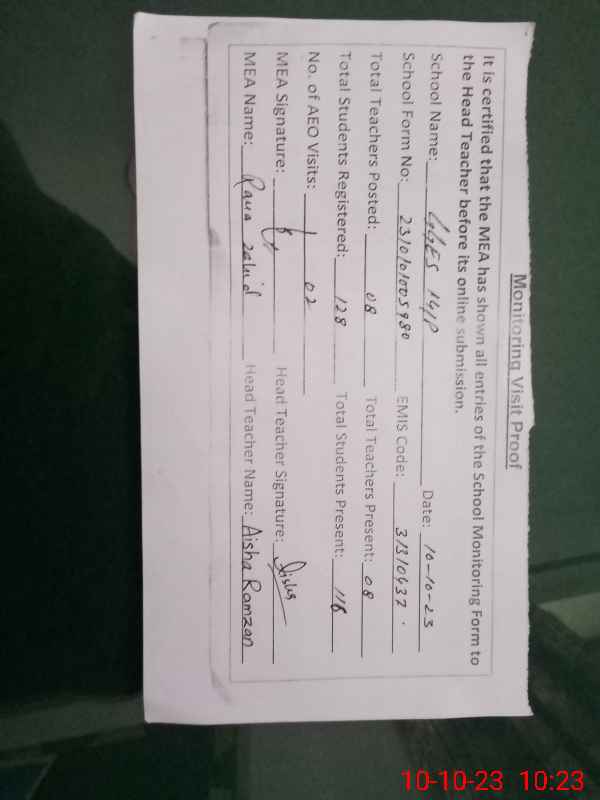 Monitoring Visit Proof
It is certified that the MEA has shown all entries of the School Monitoring Form to
the Head Teacher before its online submission.
School Name: GGES 141P Date: 10-10-23
School Form No: EMIS Code: 31310437
Total Teachers Posted: 08 Total Teachers Present: 08
Total Students Registered: 128 Total Students Present: 116
No. of AEO Visits: 02
MEA Signature: Head Teacher Signature: Aisha
MEA Name: Rana Zahid Head Teacher Name: Aisha Ramzan
10-10-23 10:23